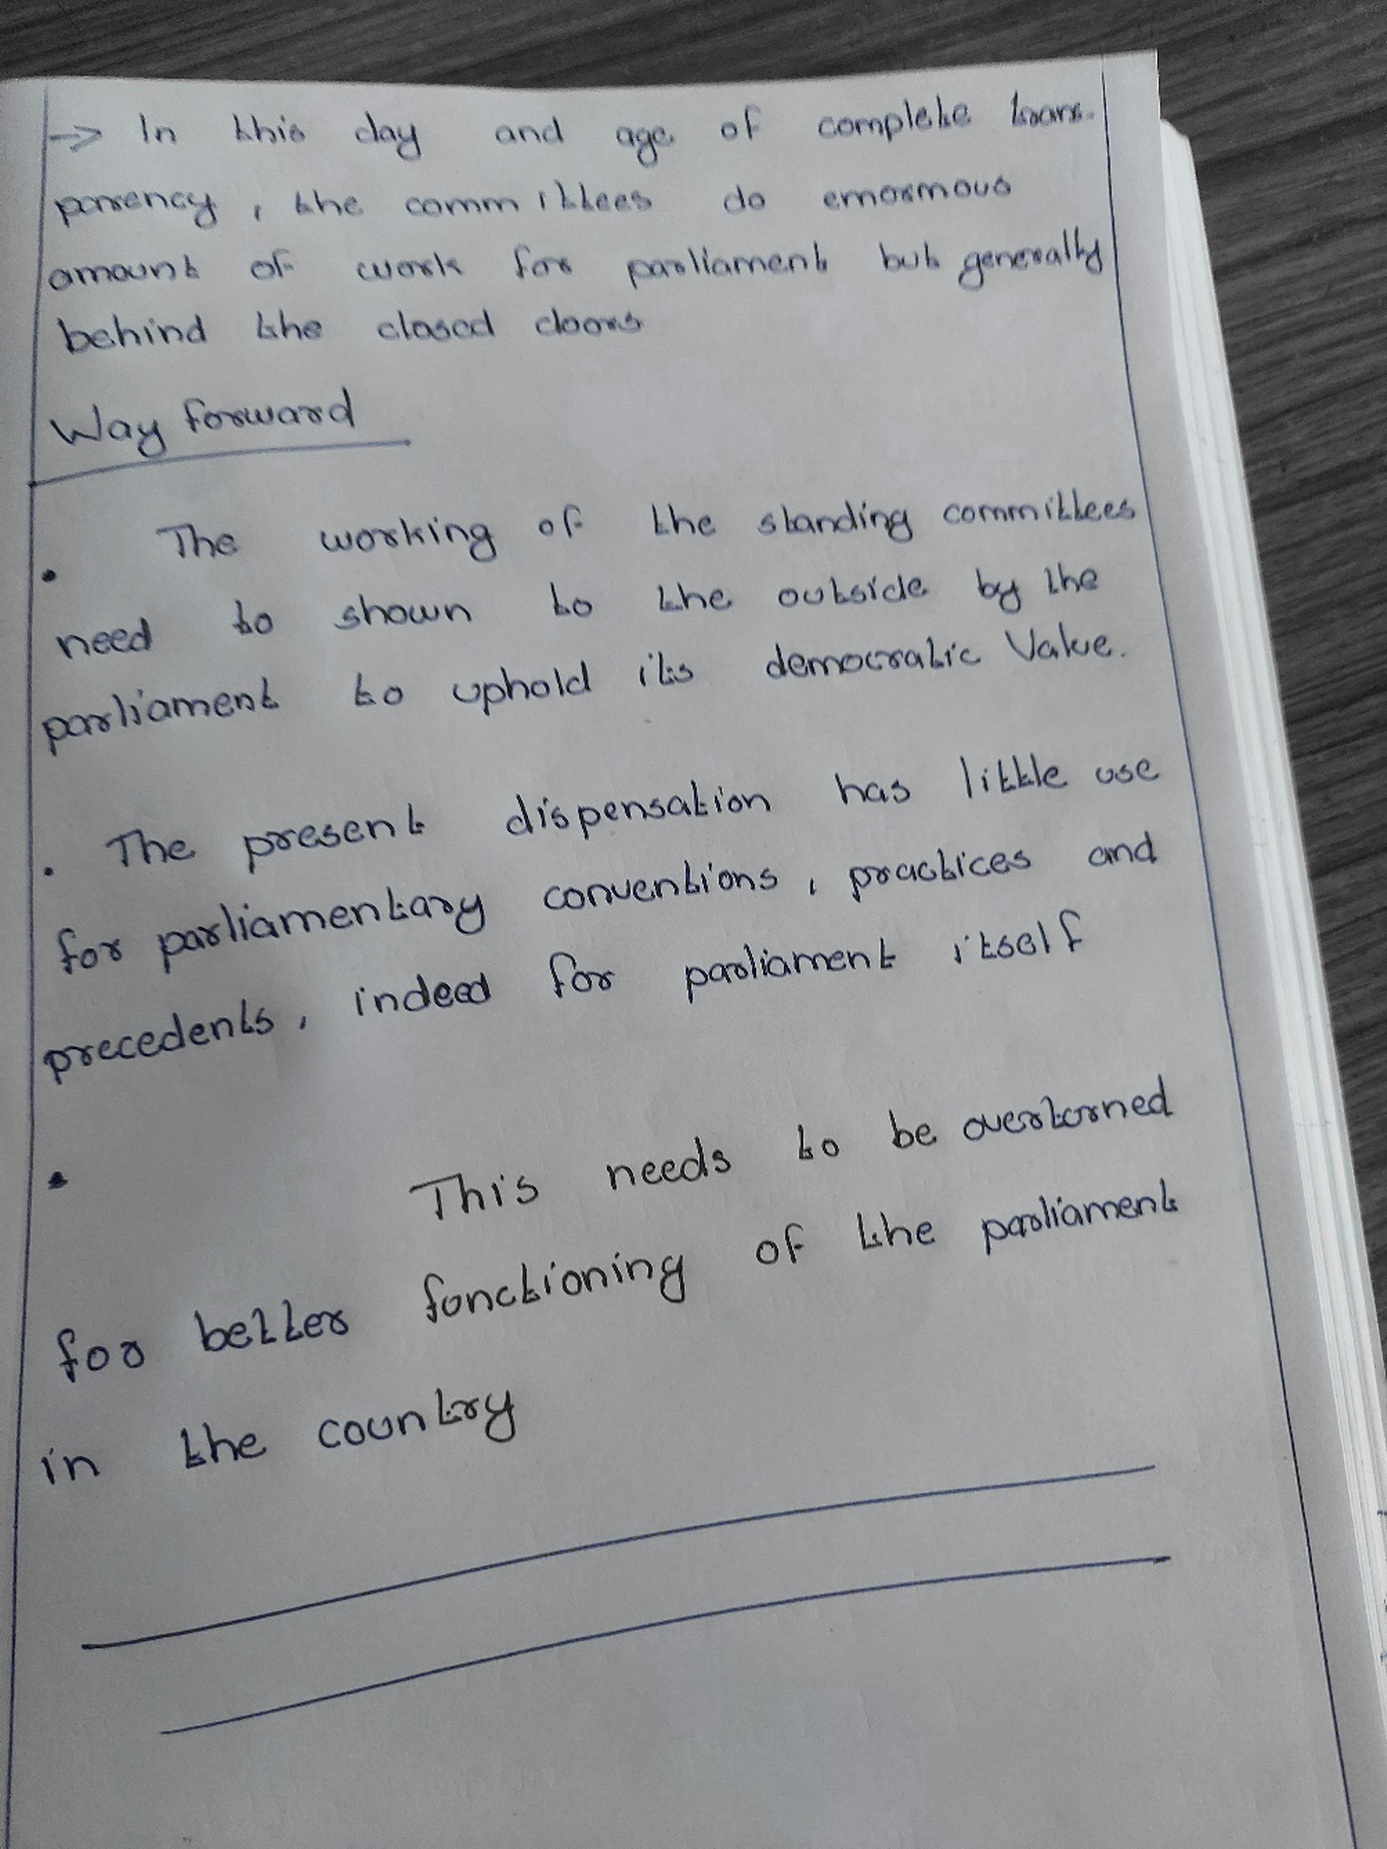 → In this day and age of complete trans-
parency, the committees do enormous
amount of work for parliament but generally
behind the closed doors
Way forward
• The working of the standing committees
need to shown to the outside by the
parliament to uphold its democratic Value.
• The present dispensation has little use
for parliamentary conventions, practices and
precedents, indeed for parliament itself
• This needs to be overturned
for better functioning of the parliament
in the country